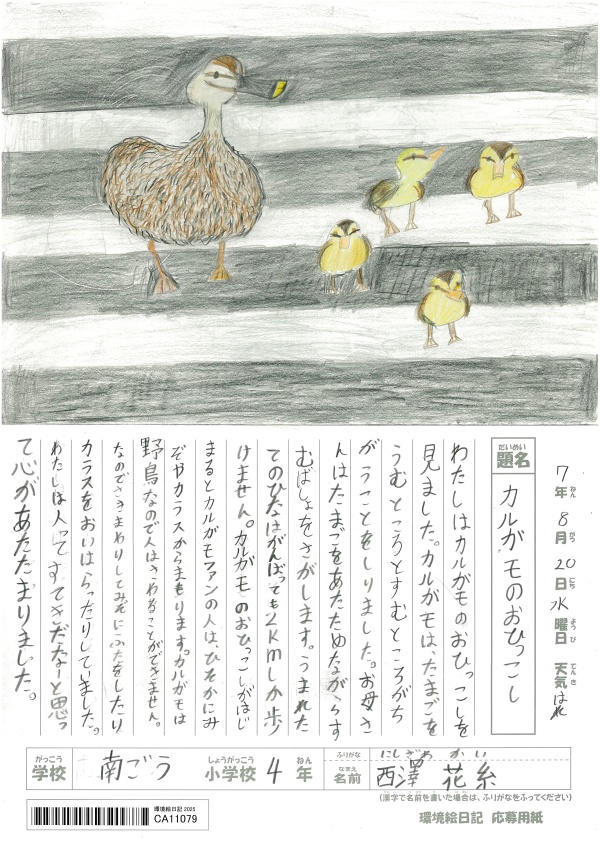 7年ねん 8月がつ 20日にち 水曜日ようび 天気てんき はれ
題名だいめい カルガモのおひっこし
わたしはカルガモのおひっこしを
見ました。カルガモは、たまごを
うむところとすむところがち
がうことをしりました。お母さ
んはたまごをあたためながらす
むばしょをさがします。うまれた
てのひなはがんばっても2kmしか歩
けません。カルガモのおひっこしがはじ
まるとカルガモファンの人は、ひそかにみ
ぞやカラスからまもります。カルガモは
野鳥なので人はさわることができません。
なのでさきまわりしてみぞにふたをしたり
カラスをおいはらったりしていました。
わたしは人ってすてきだなーと思っ
て心があたたまりました。
学校がっこう 南ごう 小学校しょうがっこう 4年ねん
ふりがな にしざわ かい
名前なまえ 西澤 花糸
(漢字で名前を書いた場合は、ふりがなをふってください)
環境絵日記 2025
CA11079
環境絵日記 応募用紙